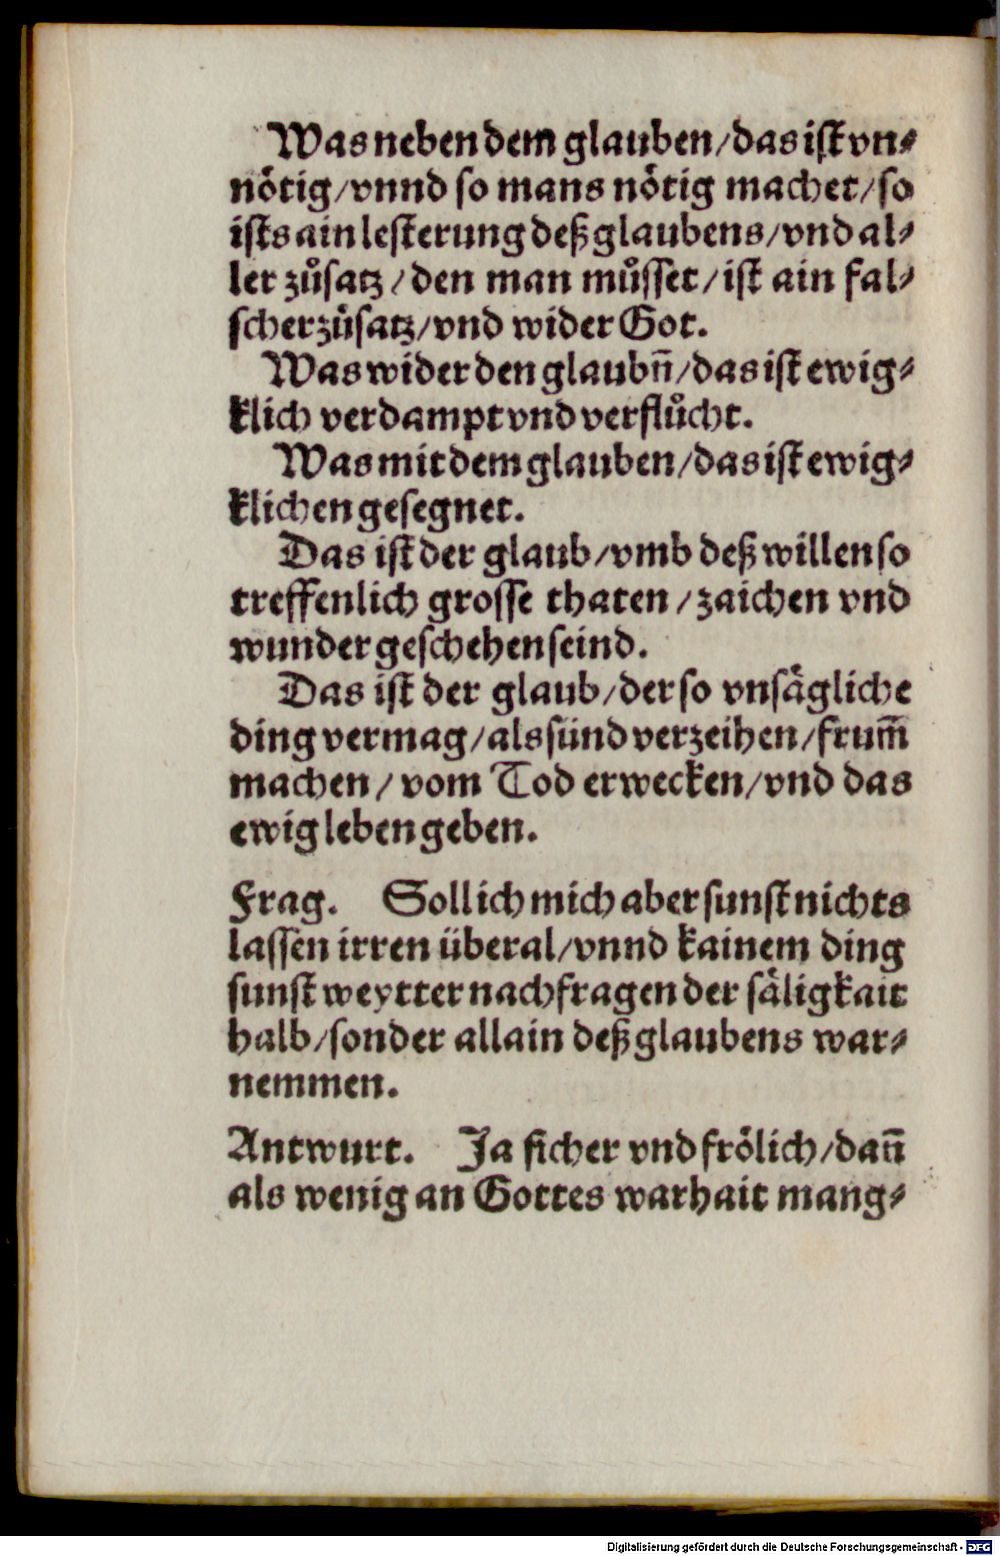 Was neben dem glauben/das ist vn⸗
nötig/vnnd so mans nötig machet/so
ists ain lesterung deß glaubens/vnd al⸗
ler zůsatz/den man můsset/ist ain fal⸗
scher zůsatz/vnd wider Got.
Was wider den glaubn̄/das ist ewig⸗
klich verdampt vnd verflůcht.
Was mit dem glauben/das ist ewig⸗
klichen gesegnet.
Das ist der glaub/vmb deß willen so
treffenlich grosse thaten/zaichen vnd
wunder geschehen seind.
Das ist der glaub/der so vnsägliche
ding vermag/als sünd verzeihen/frum̄
machen/vom Tod erwecken/vnd das
ewig leben geben.
Frag. Soll ich mich aber sunst nichts
lassen irren überal/vnnd kainem ding
sunst weytter nachfragen der säligkait
halb/sonder allain deß glaubens war⸗
nemmen.
Antwurt. Ja sicher vnd frölich/dan̄
als wenig an Gottes warhait mang⸗
Digitalisierung gefördert durch die Deutsche Forschungsgemeinschaft - DFG